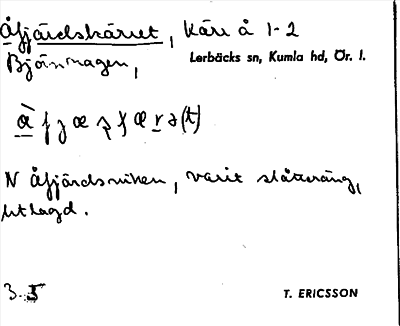 Åfjärdskärret, Kärr å 1-2
Björnhagen,
Lerbäcks sn, Kumla hd, Ör. l.
N Åfjärdsviken, varit slåtteräng,
utlagd.
3.
T. ERICSSON